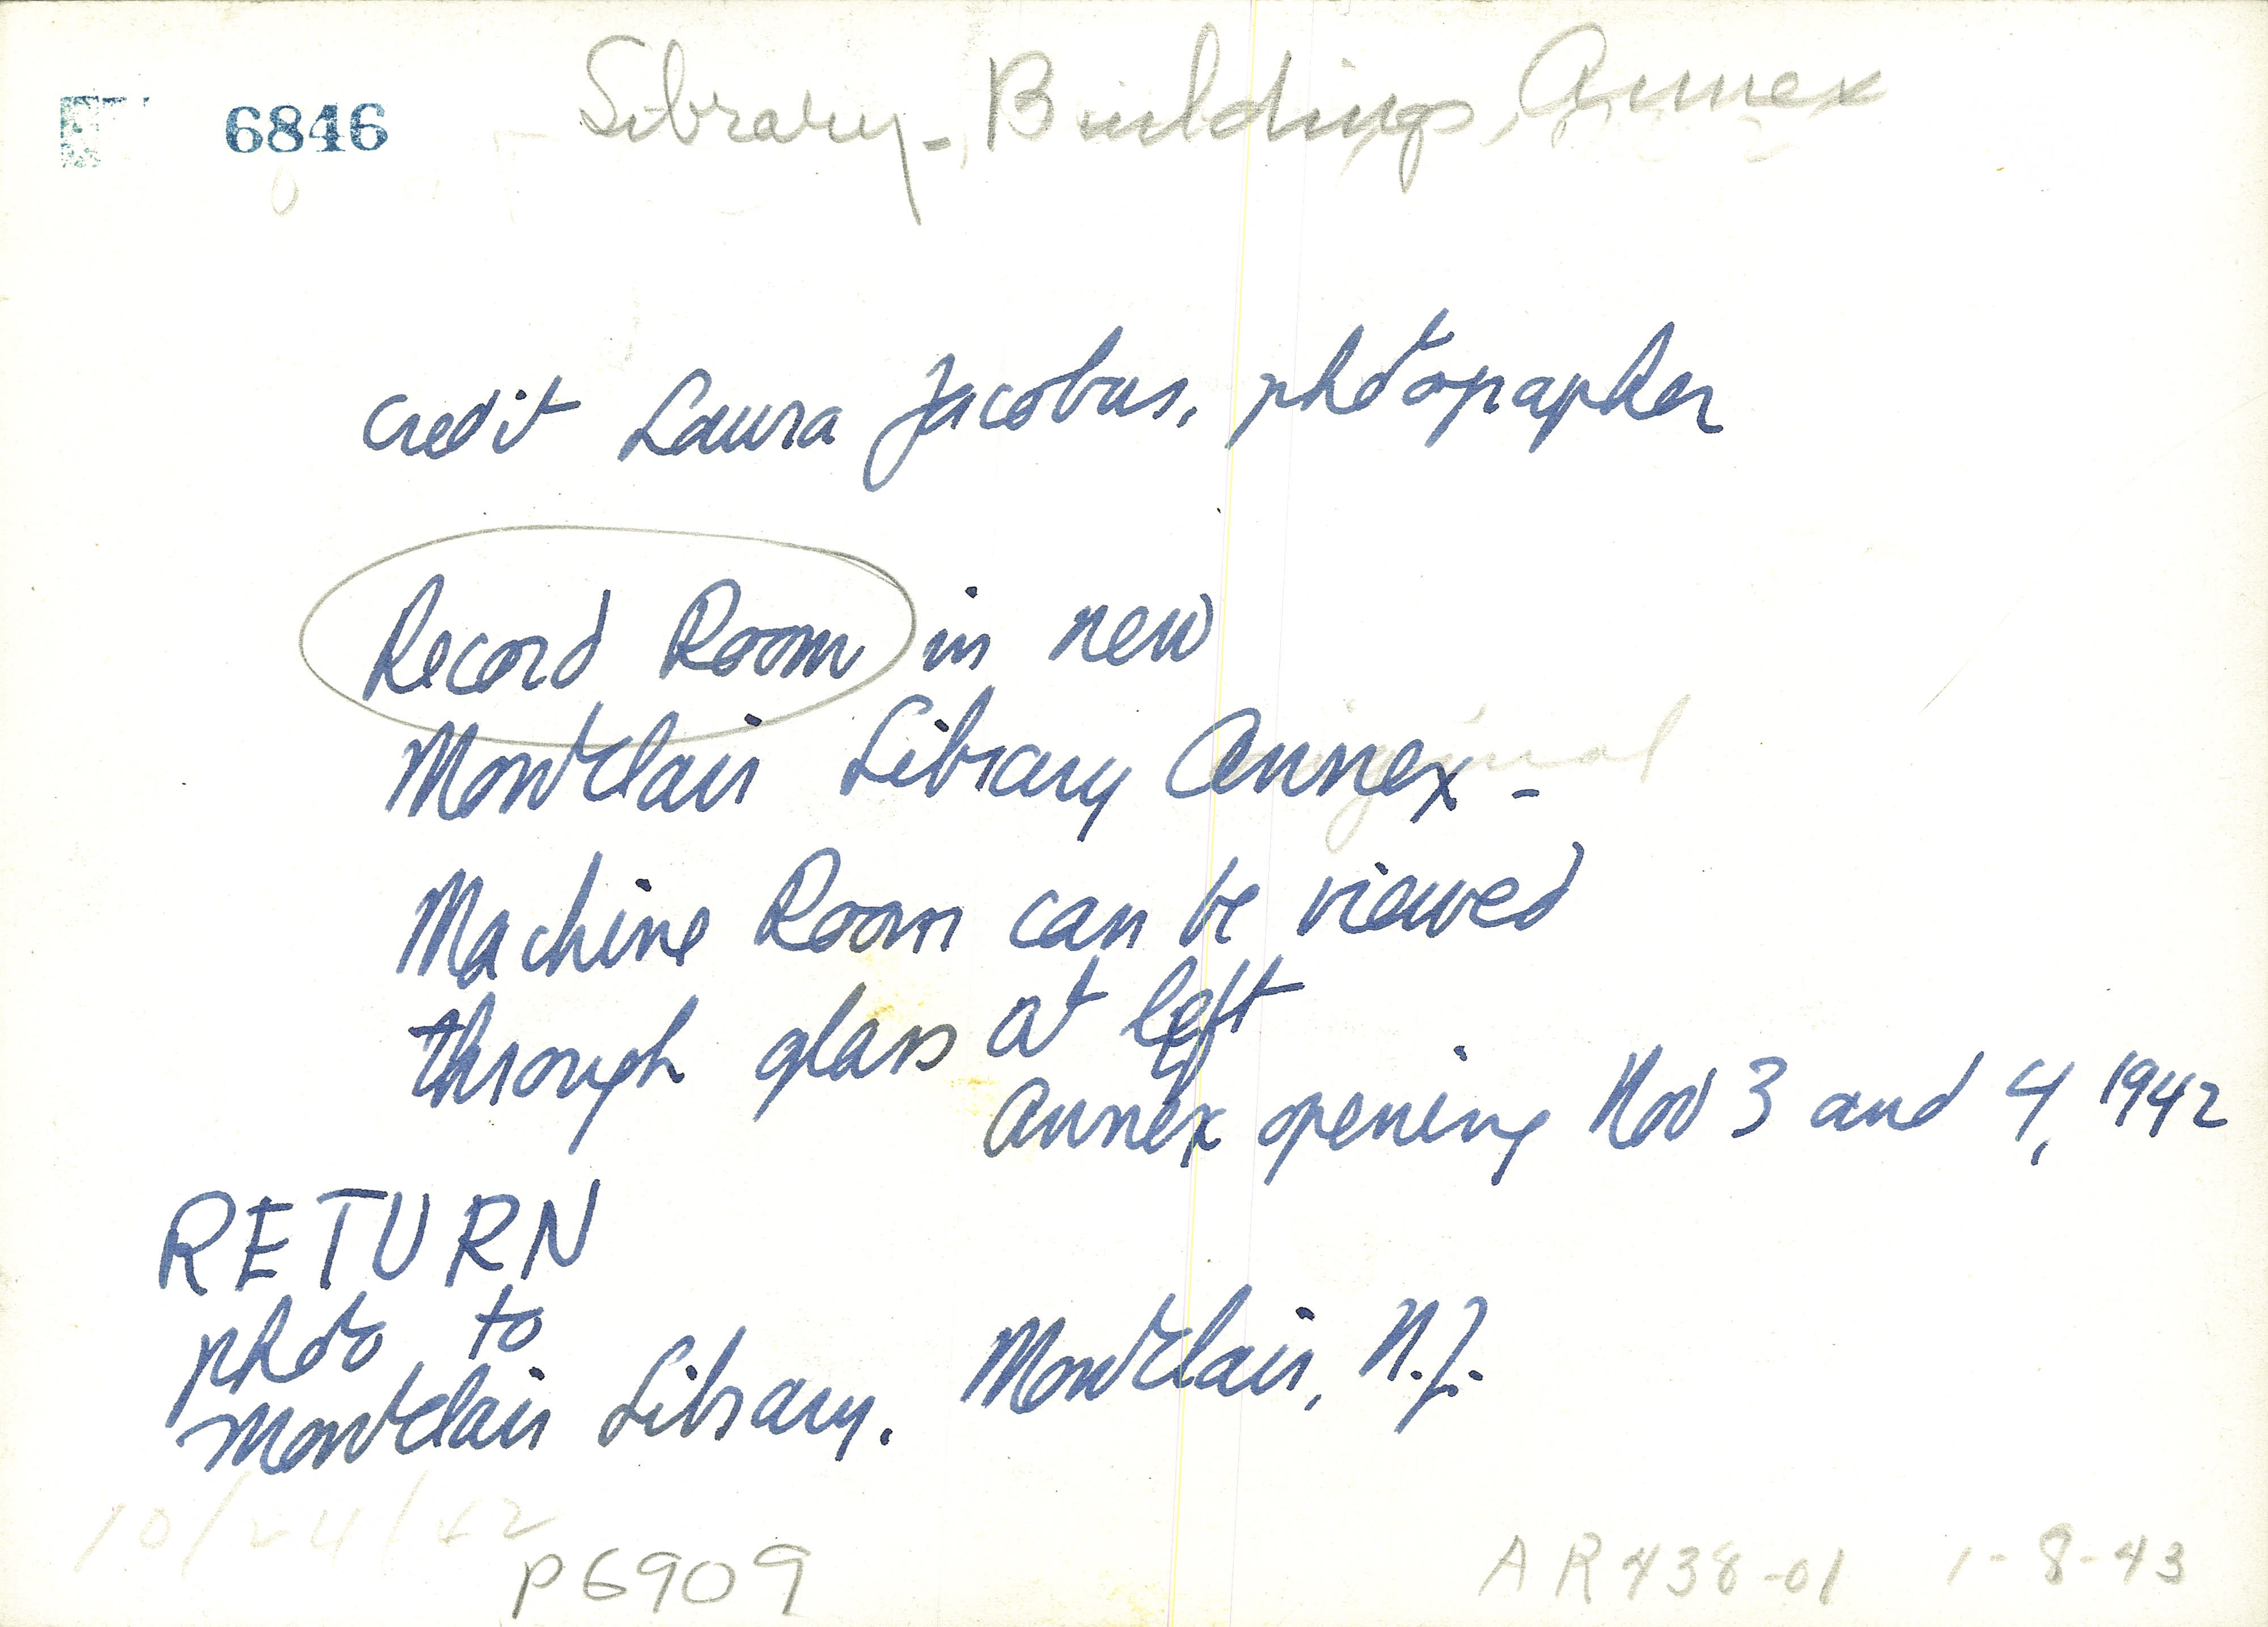 6846 Library - Buildings, Annex
credit Laura Jacobus, photographer
Record Room in new
Montclair Library Annex -
original
Machine Room can be viewed
through glass at left
Annex opening Nov 3 and 4, 1942
RETURN
photo to
Montclair Library. Montclair, N.J.
P6909
AR438-01 1-8-43